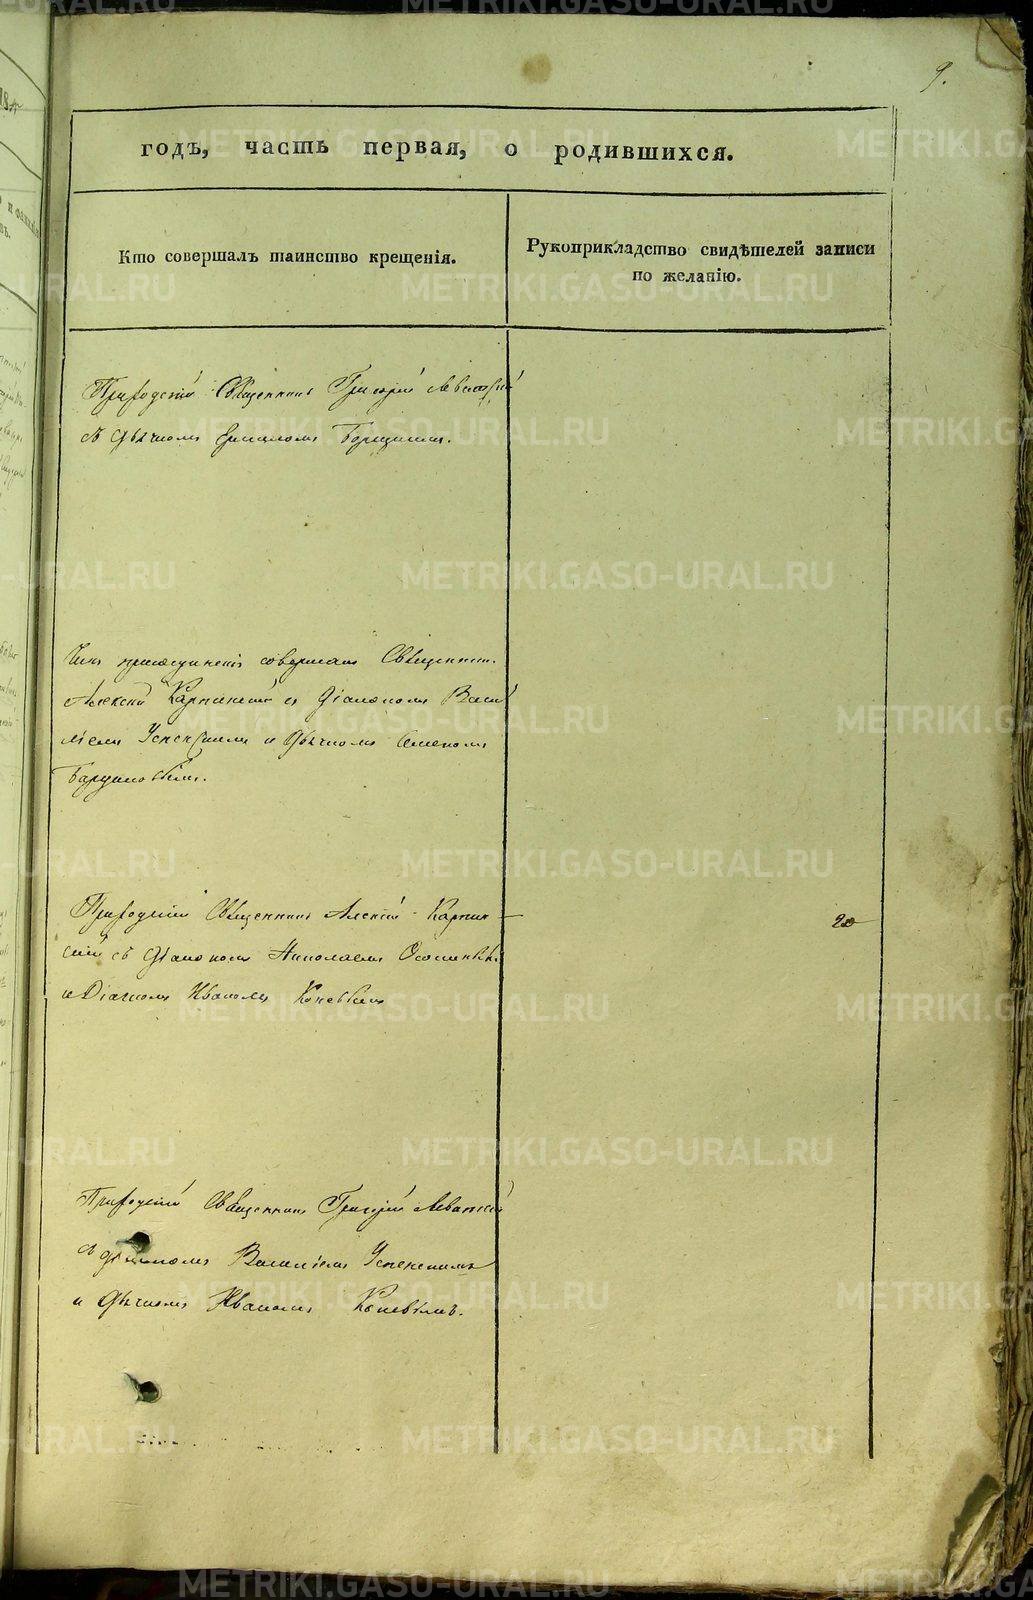 9.
годъ, часть первая, о родившихся.
Кто совершалъ таинство крещенія.
Рукоприкладство свидѣтелей записи
по желанію.
Приходскій Священникъ Григорій Левитскій
съ дьячкомъ
Чинъ присоединенія совершалъ Священник.
Алексій Карпинскій съ діакономъ Васи
ліемъ Успенскимъ и дьячкомъ Семеномъ
Приходскій Священникъ Алексій Карпин
скій съ діакономъ Николаемъ
и Діачкомъ Иваномъ Коневымъ
20
Приходскій Священникъ Григорій Левитскій
съ діакономъ Василіемъ Успенскимъ
и дьячкомъ Иваномъ Коневымъ.
METRIKI.GASO-URAL.RU